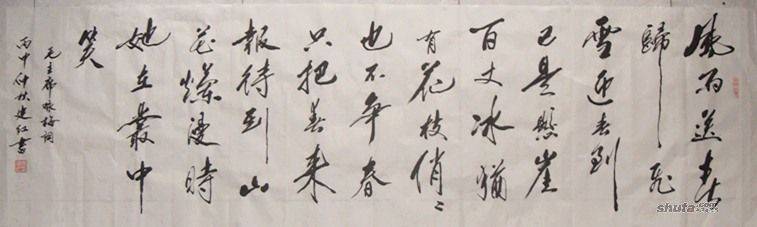 風雨送春
歸飛
雪迎春到
已是懸崖
百丈冰猶
有花枝俏〻
也不爭春
只把春来
報待到山
花爛漫時
她在叢中
笑
毛主席咏梅詞
丙申仲秋建红書